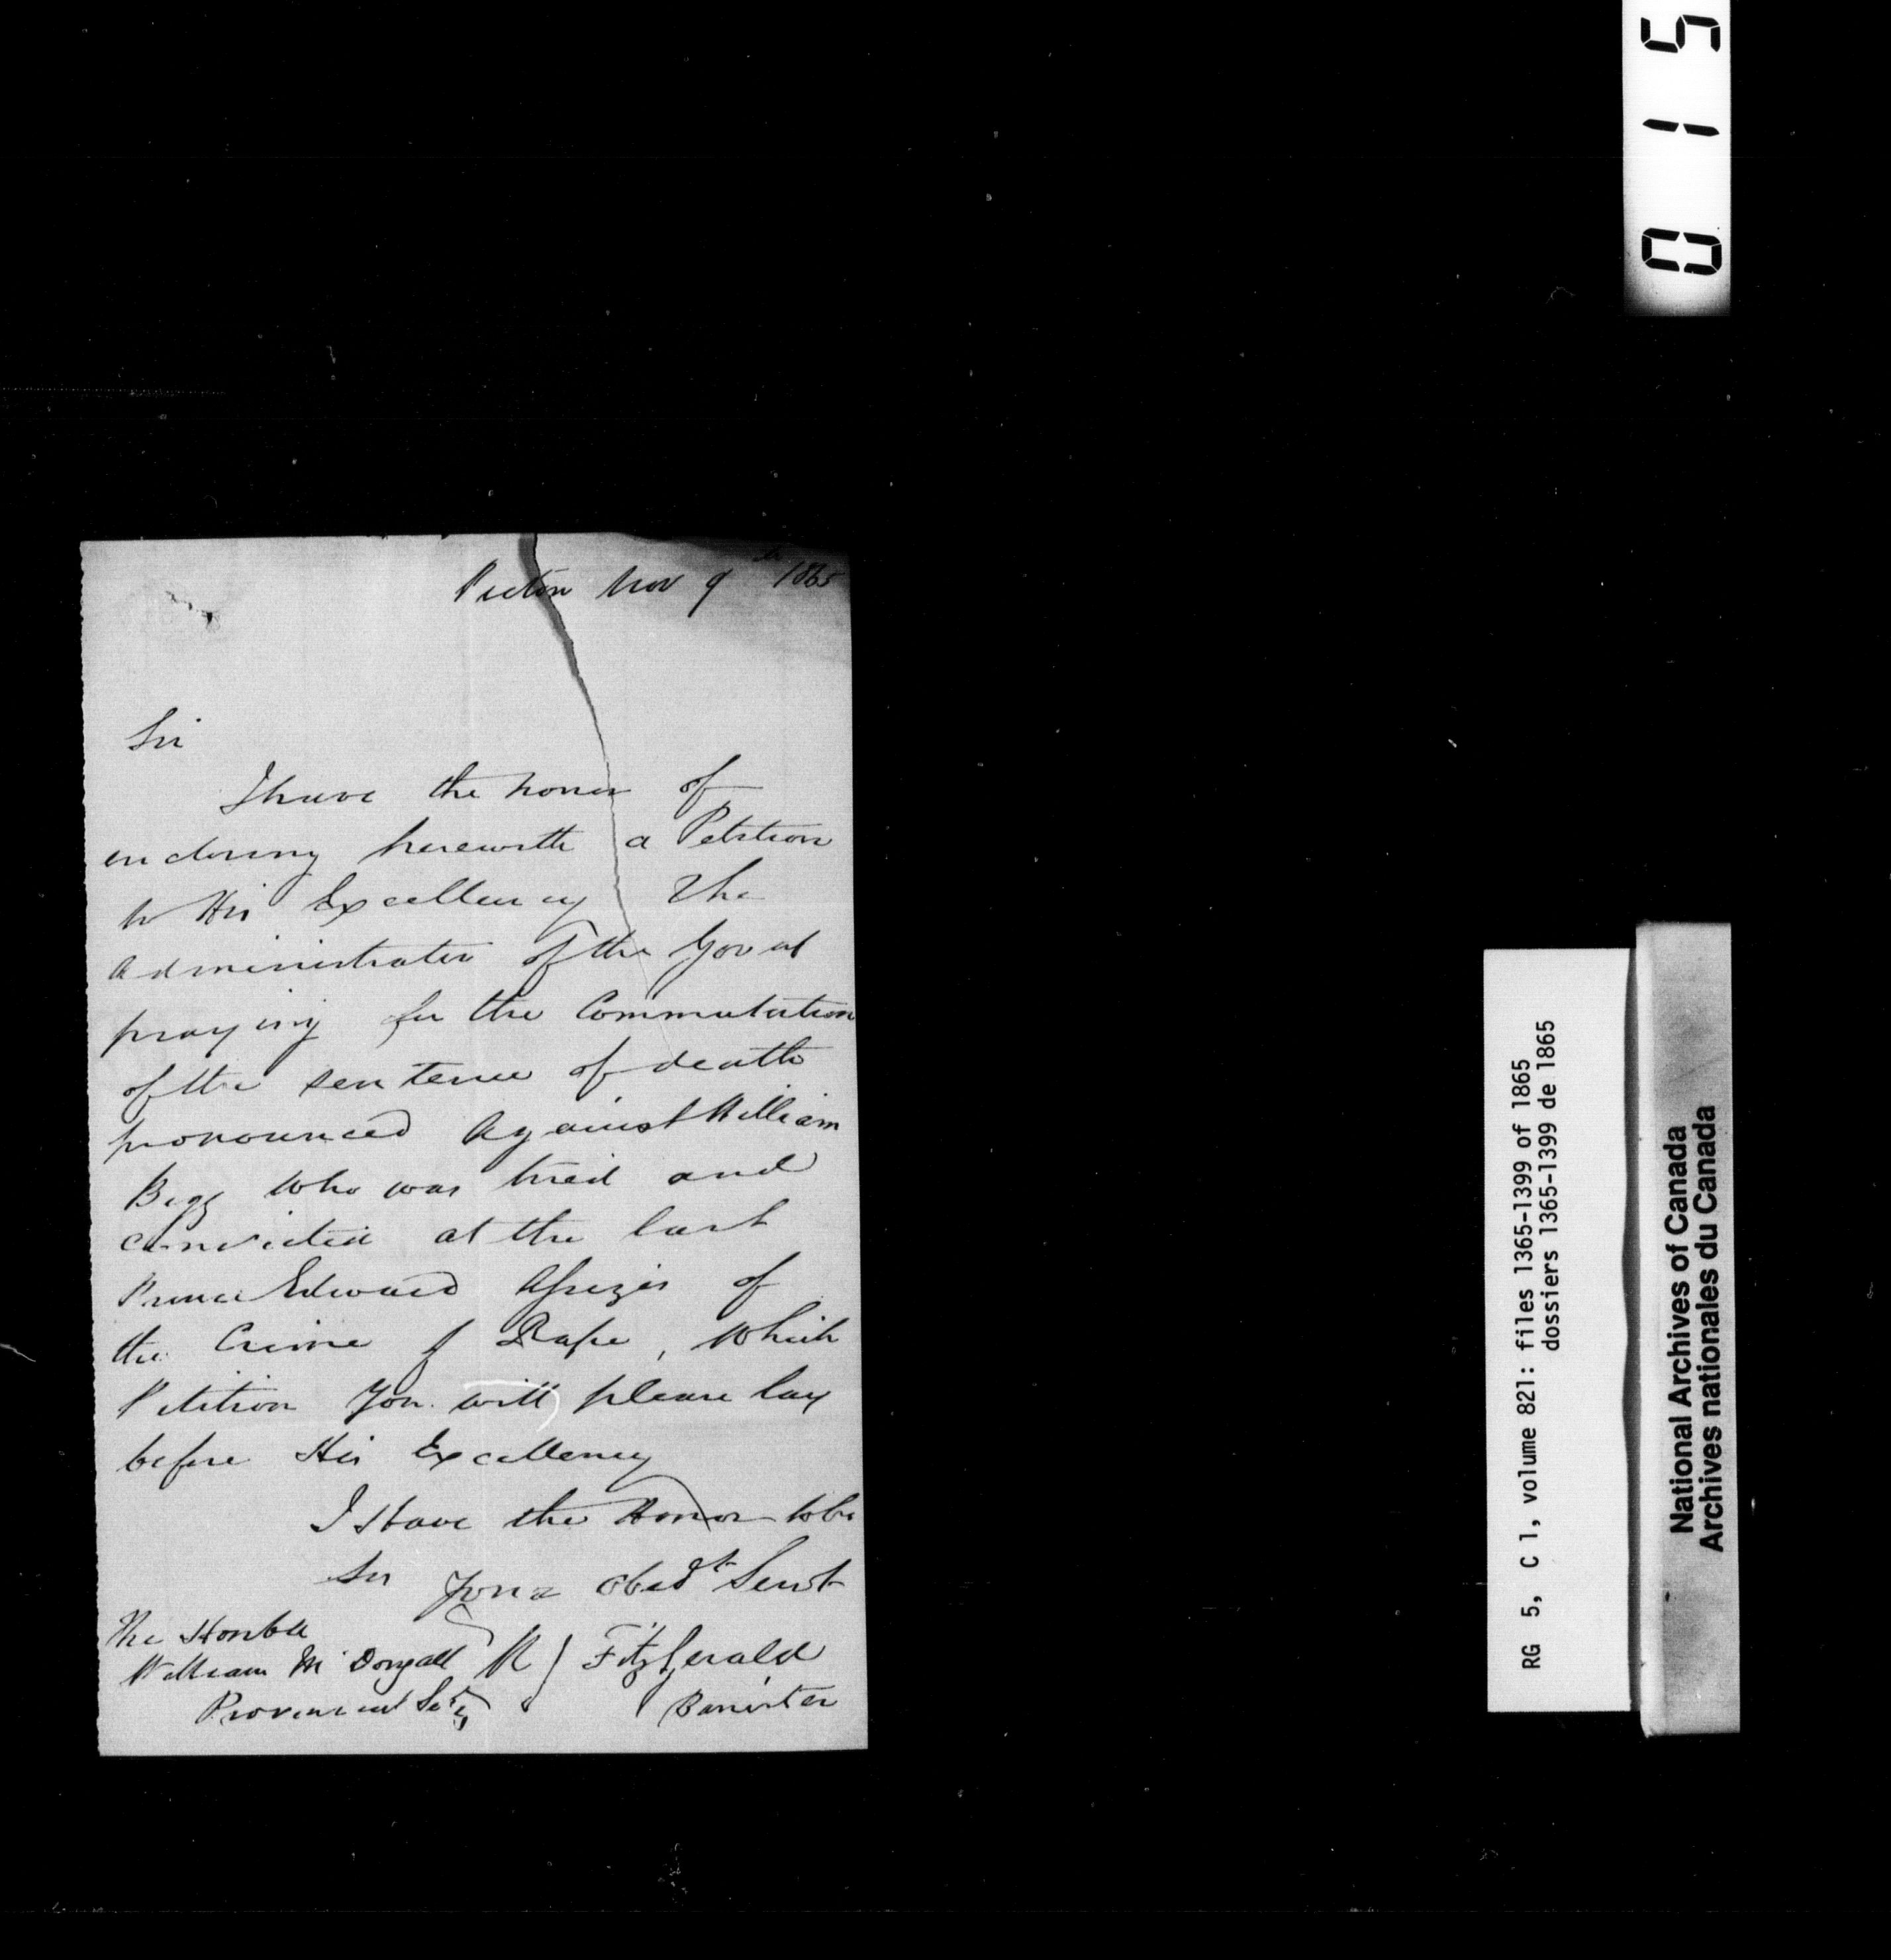 Picton Nov 9th 1865
Sir
I have the honor of
enclosing herewith a Petition
to His Excellency The
Administrator of the Govnt
praying for the Commutation
of the sentence of death
pronounced Against William
Begg who was tried and
convicted at the last
Prince Edward Assizes of
the Crime of Rape, Which
Petition You will please lay
before His Excellency
I Have the Honor to be
Sir Your obedt Servt
The Honble
William McDougall
Provincial Secy
R J FitzGerald
Barrister
0 1 5
RG 5, C 1, volume 821: files 1365-1399 of 1865
dossiers 1365-1399 de 1865
National Archives of Canada
Archives nationales du Canada